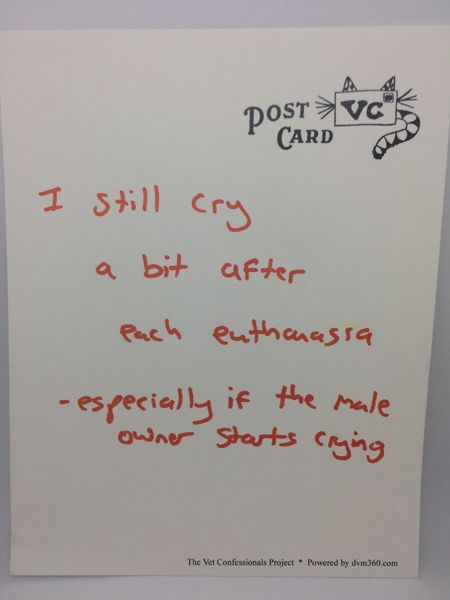 POST
CARD
VC
I still cry
a bit after
each euthanasia
-especially if the male
owner starts crying
The Vet Confessionals Project * Powered by dvm360.com